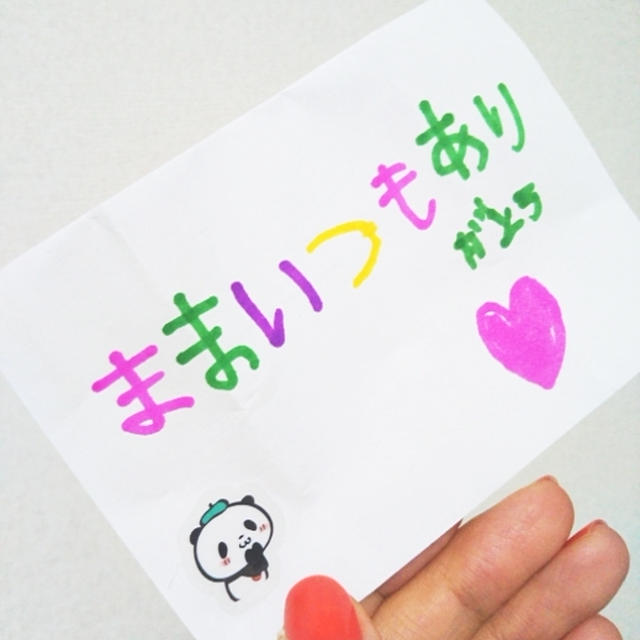 ままいつもあり
がとう